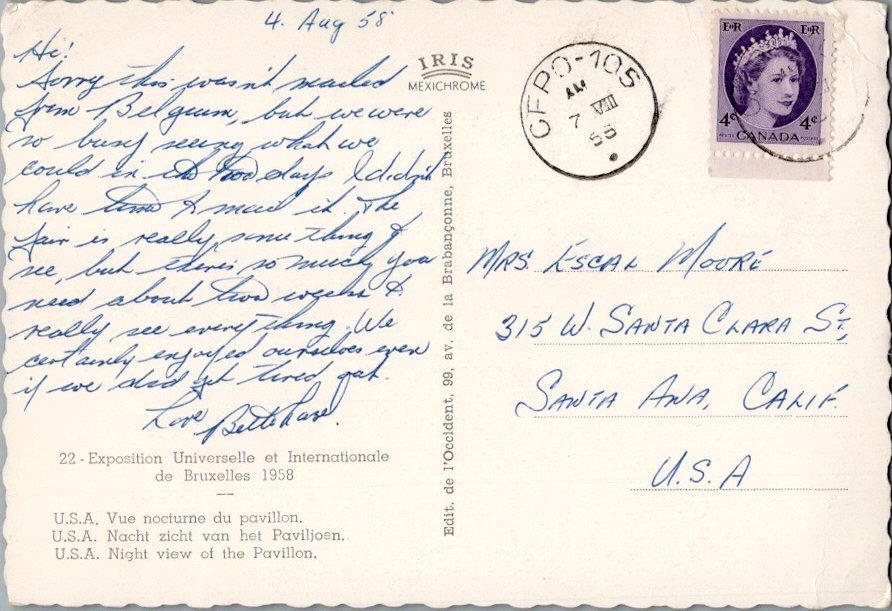 4. Aug 58
Hi!
Sorry this wasn't mailed
from Belgium, but we were
so busy seeing what we
could in the two days I didn't
have time to mail it. The
fair is really something to
see, but there's so much you
need about two weeks to
really see everything. We
certainly enjoyed ourselves even
if we did get tired out.
Love
22 - Exposition Universelle et Internationale
de Bruxelles 1958
U.S.A. Vue nocturne du pavillon.
U.S.A. Nacht zicht van het Paviljoen.
U.S.A. Night view of the Pavillon.
IRIS
MEXICHROME
Edit. de l'Occident, 99, av. de la Brabançonne, Bruxelles
CFPO-105
AM
7 VIII
EIIR EIIR
4¢ 4¢
CANADA
POSTES POSTAGE
MRS. ESCAL MOORE
315 W. SANTA CLARA ST.,
SANTA ANA, CALIF.
U.S.A